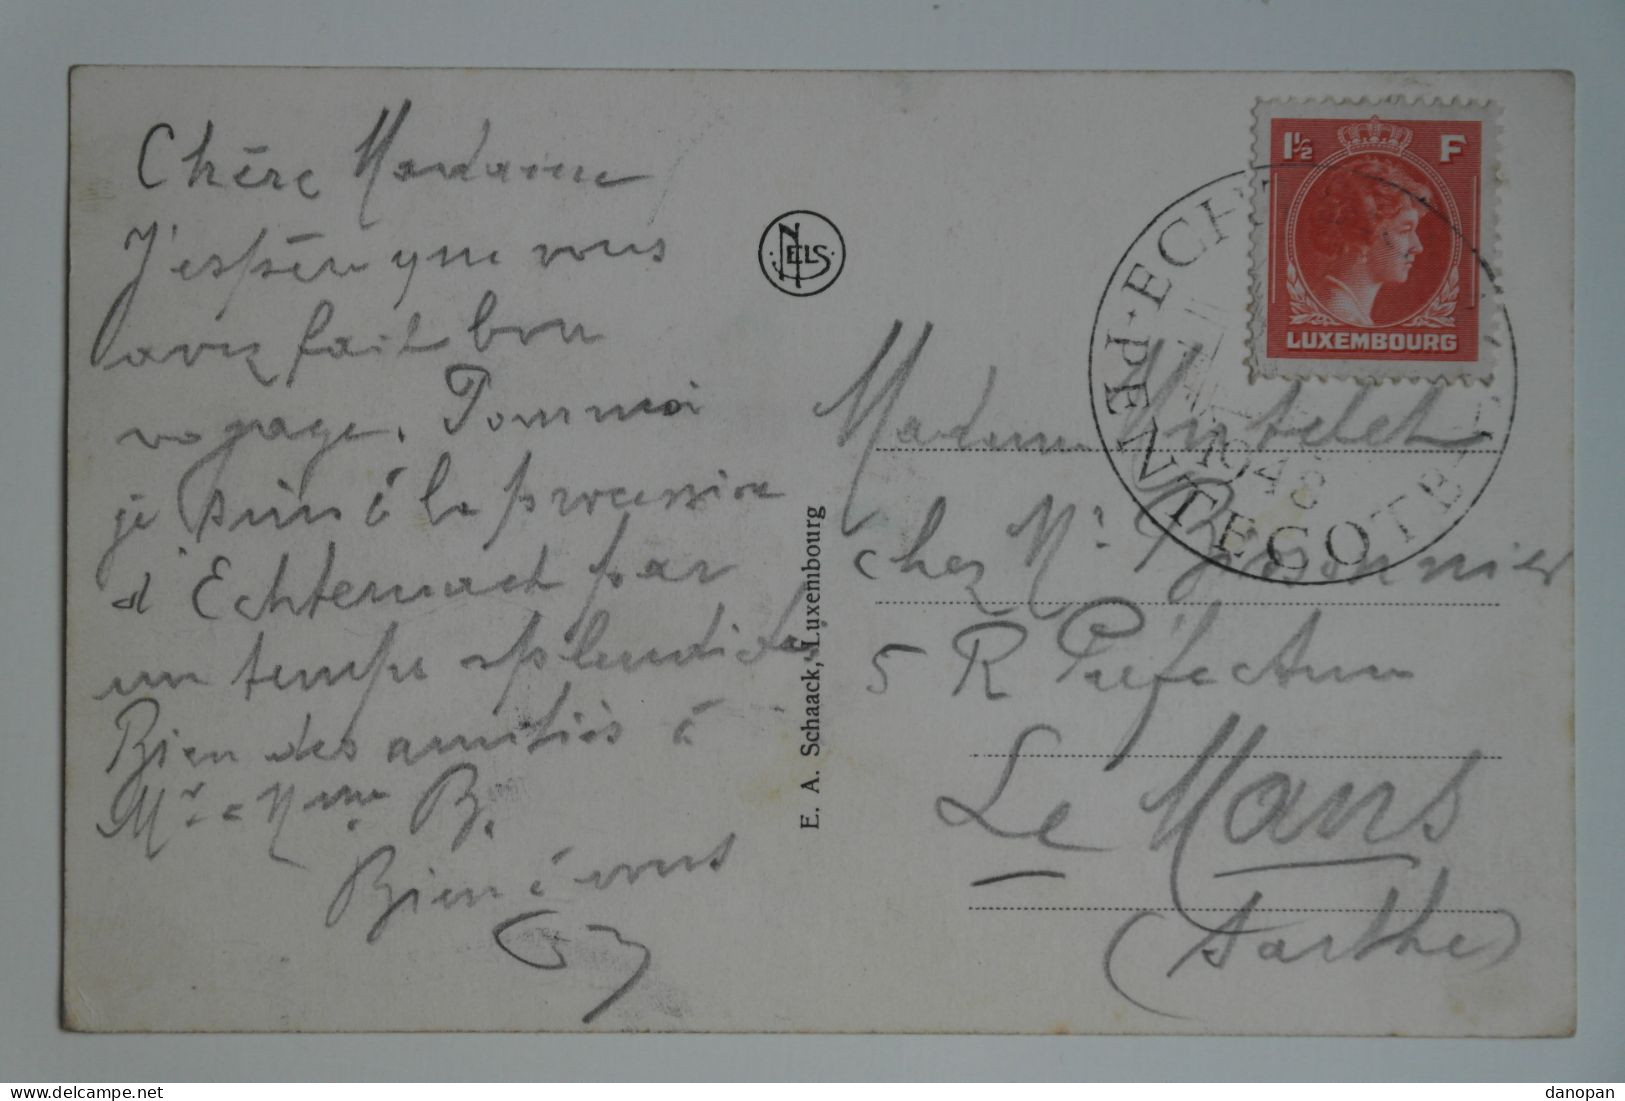 Chère Madame
J'espère que vous
avez fait bon
voyage. Pour moi
je suis à la procession
d'Echternach par
un temps splendide
Bien des amitiés à
Mr. e Mme. B.
Bien à vous
NELS
E. A. Schaack, Luxembourg
1½ F
LUXEMBOURG
PENTECOTE
1948
Madame
chez Mr
5 R Préfecture
Le Mans
(Sarthe)
delcampe.net
danopan